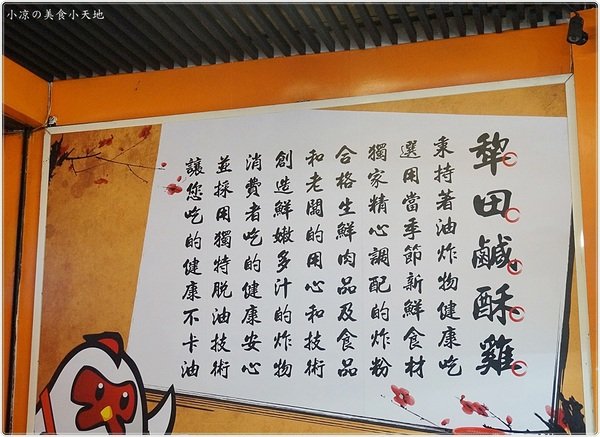 小凉の美食小天地
犂田鹹酥雞
秉持著油炸物健康吃
選用當季節新鮮食材
獨家精心調配的炸粉
合格生鮮肉品及食品
和老闆的用心和技術
創造鮮嫩多汁的炸物
消費者吃的健康安心
並採用獨特脫油技術
讓您吃的健康不卡油